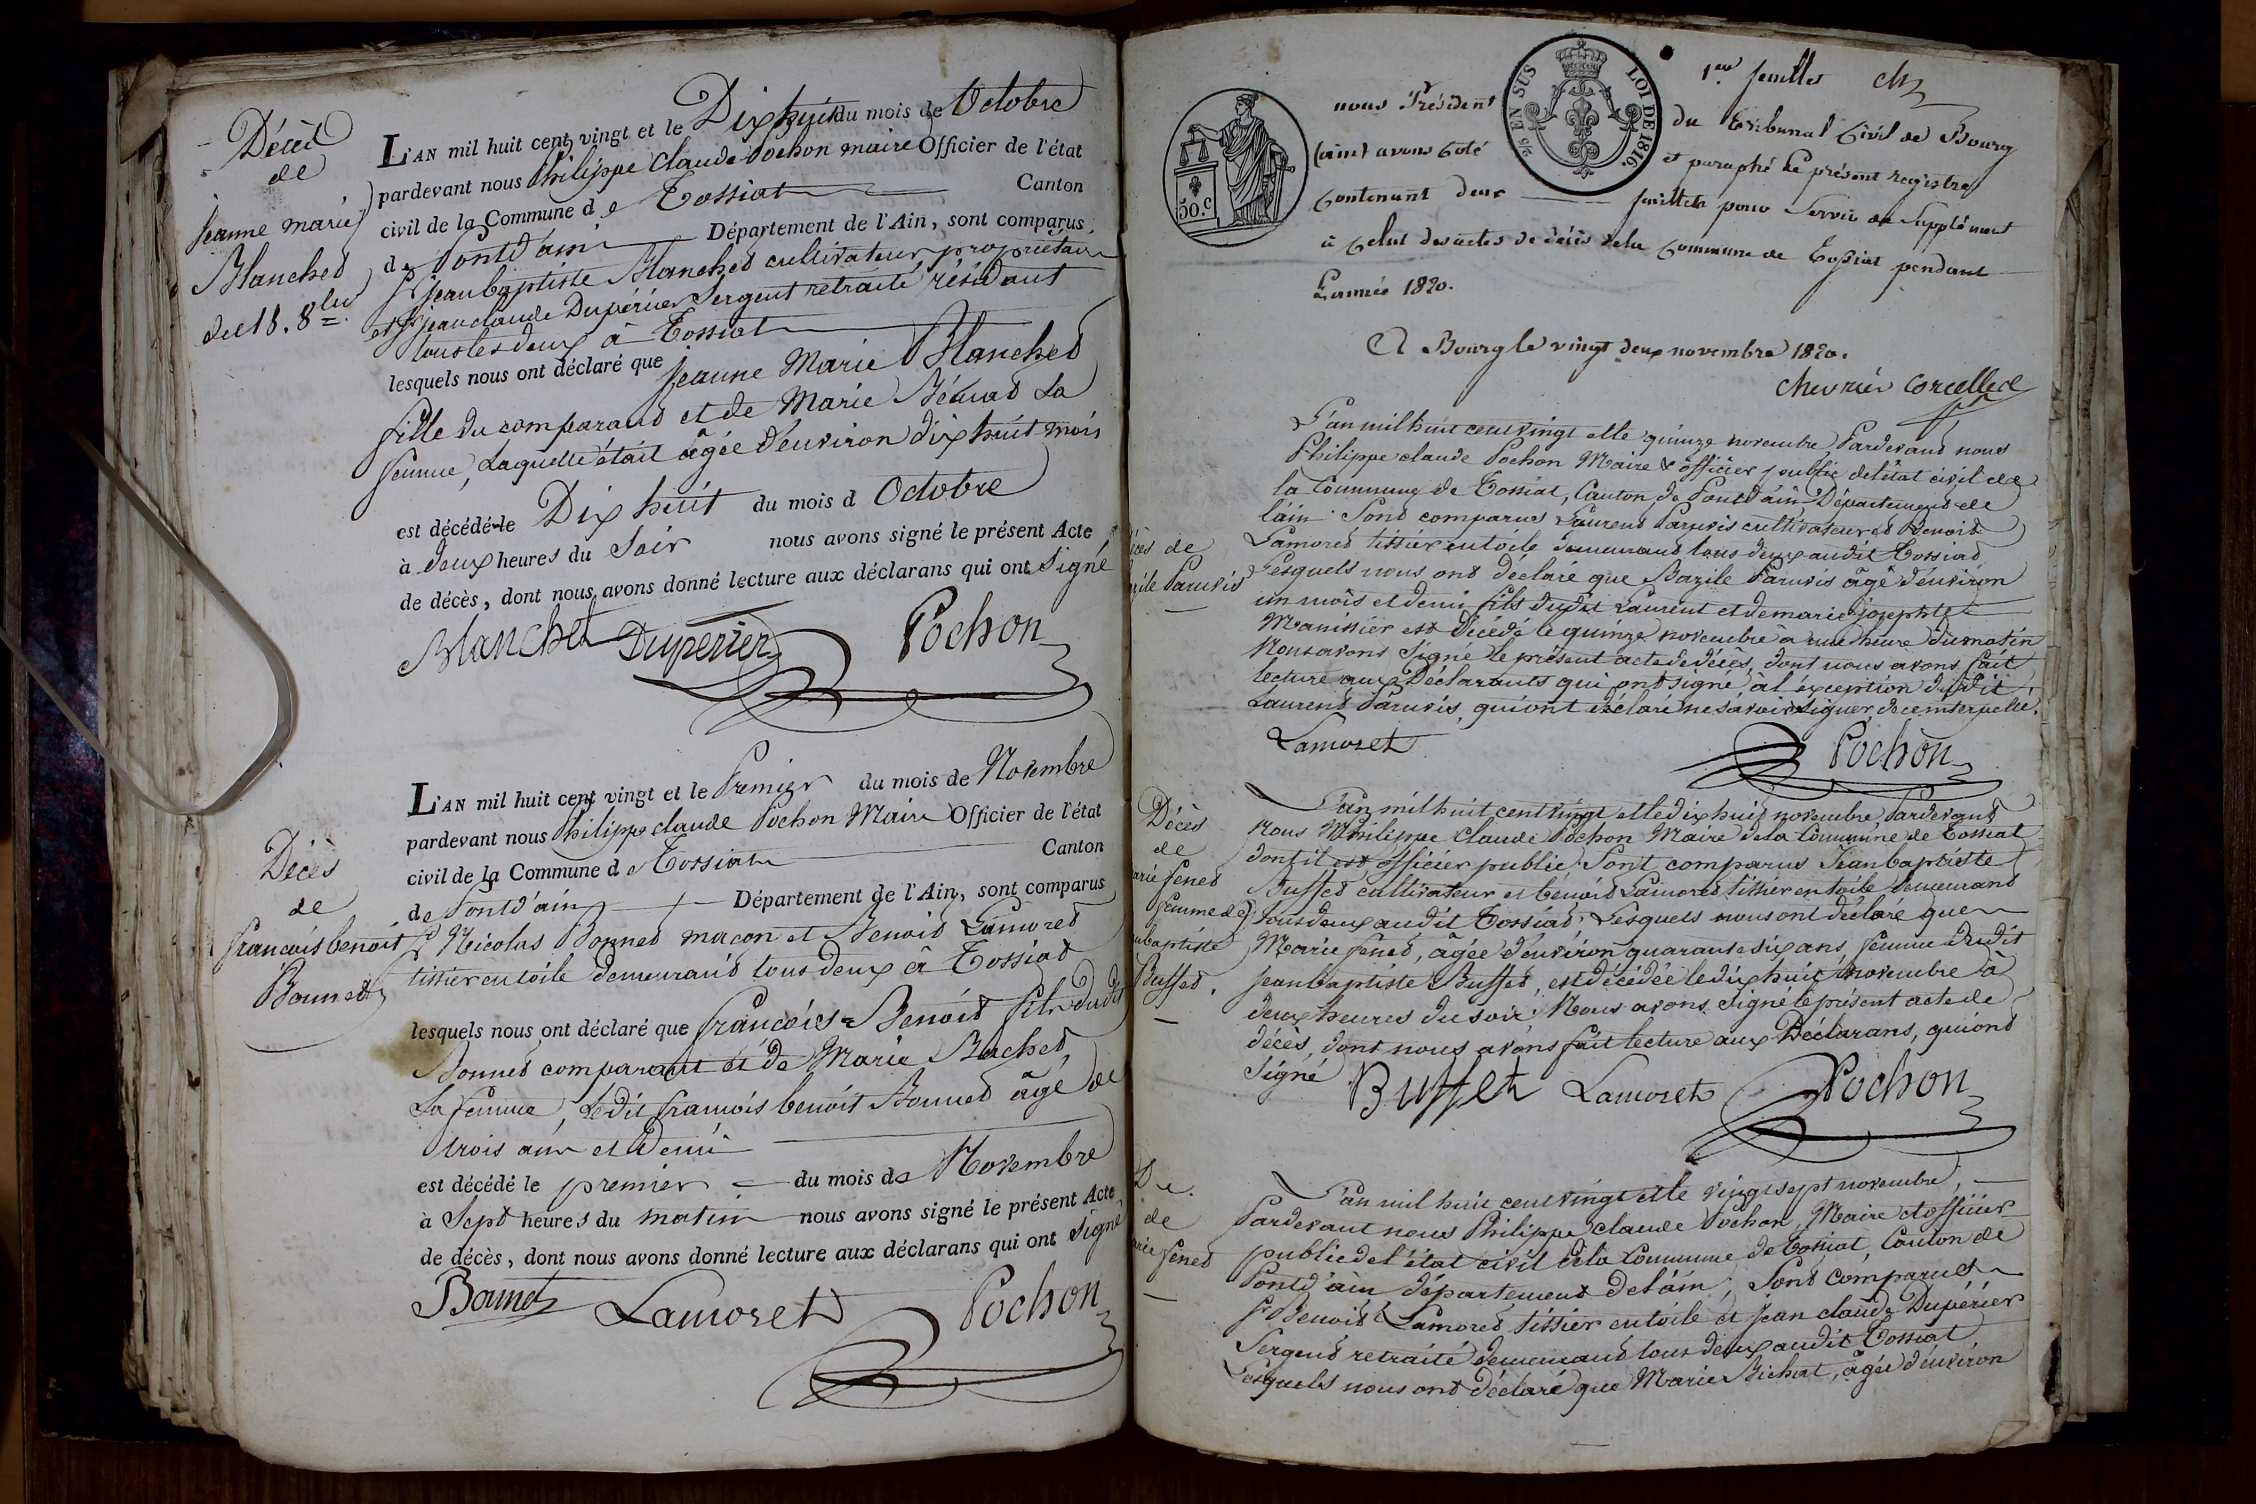 Décès
de
jeanne marie
Blanched
du 18. 8bre
L'AN mil huit cent vingt et le Dix huit du mois de Octobre
pardevant nous Philippe Claude Pochon maire Officier de l'état
civil de la Commune d e Tossiat Canton
de Pontd'ain Département de l'Ain, sont comparus
jean baptiste Blanched cultivateur propriétaire
et jean claude Dupérier Sergent retraité résidant
tous les deux à Tossiat
lesquels nous ont déclaré que jeanne Marie Blanched
fille du comparand et de Marie La
femme, Laquelle était âgée d'environ dix huit mois
est décédé le Dix huit du mois d Octobre
à deux heures du Soir nous avons signé le présent Acte
de décès, dont nous avons donné lecture aux déclarans qui ont Signé
Blanchet Duperier Pochon
Décès
de
francois benoit
Bonnet
L'AN mil huit cent vingt et le Premier du mois de Novembre
pardevant nous Philippe claude Pochon Maire Officier de l'état
civil de la Commune d e Tossiat Canton
de Pontd'ain Département de l'Ain, sont comparus
Nicolas Bonned macon et Benoid Lamored
tissier en toile demeurand tous deux à Tossiad
lesquels nous ont déclaré que francois Benoid fils dudit
Bonned comparant et de Marie Buched,
La femme, Ledit francois benoit Bonned âgé de
trois ans et Demi
est décédé le premier du mois de Novembre
à Sept heures du matin nous avons signé le présent Acte
de décès, dont nous avons donné lecture aux déclarans qui ont Signé
Bonnet Lamoret Pochon
1er feuillet
nous Président du tribunal Civil de Bourg
(ain) avons Coté et paraphé le présent registre
Contenant deux feuillets pour Servir de Supplément
à Celui des actes de décès de la Commune de Tossiat pendant
L'année 1820.
50.C
25 EN SUS LOI DE 1816.
A Bourg le vingt deux novembre 1820.
chevrier Corcelles
L'an mil huit cent vingt et le quinze novembre, Pardevand nous
Philippe claude Pochon Maire & officier public de l'état civil de
la Commune de Tossiat, Canton de Pontd'ain, Département de
l'ain. Sond comparus Laurend Paruvis cultivateur et Benoid
Lamored tissier en toile demeurand tous deux audit Tossiad
Lesquels nous ond déclaré que Bazile Paruvis âgé d'environ
un mois et demi fils dudit Laurent et de marie josephte
Manissier est décédé le quinze novembre à une heure du matin
Nous avons Signé le présent acte de décès, dont nous avons fait
lecture aux Déclarants qui ond signé, à l'exception dudit
Laurend Paruvis, qui ont déclaré ne savoir signer, de ce interpellé.
Lamoret Pochon
Décès de
Bazile Paruvis
L'an mil huit cent vingt et le dix huit novembre, Pardevand
Nous Philippe Claude Pochon Maire de la Commune de Tossiat
dont il est officier public, Sont comparus Jean baptiste
Buffed cultivateur et bénoid Lamored tissier en toile demeurand
tous deux audit Tossiad, Lesquels nous ont déclaré que
Marie fened, âgée d'environ quarante six ans, femme dudit
jean baptiste Buffed, est décédée le dix huit novembre à
deux heures du soir. Nous avons signé le présent acte de
décès, dont nous avons fait lecture aux Déclarans, qui ond
Signé
Buffet Lamoret Pochon
Décès
de
arie fened
femme de j
baptiste
Buffed.
L'an mil huit cent vingt et le vingt sept novembre,
Pardevant nous Philippe claude Pochon, Maire et officier
public de l'état civil de la Commune de Tossiat, Canton de
Pontd'ain département de l'ain; Sond comparus
Benoid Lamored tissier en toile et jean claude Dupérier
Sergend retraité demeurand tous deux audit Tossiat,
Lesquels nous ond Déclaré que Marie Bichat, âgée d'environ
de
fened